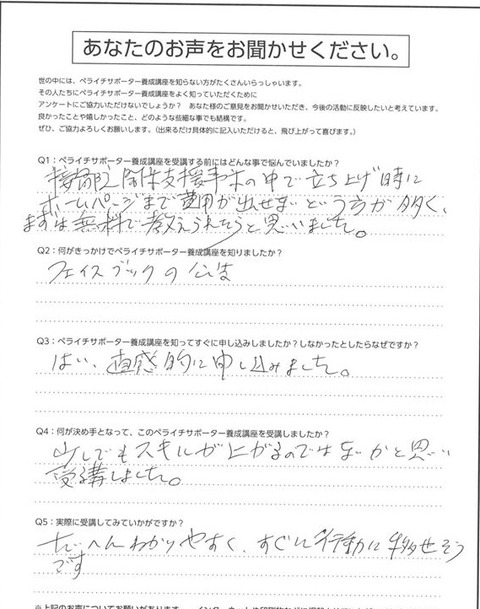 あなたのお声をお聞かせください。
世の中には、ペライチサポーター養成講座を知らない方がたくさんいらっしゃいます。
その人たちにペライチサポーター養成講座をよく知っていただくために
アンケートにご協力いただけないでしょうか？ あなた様のご意見をお聞かせいただき、今後の活動に反映したいと考えています。
良かったことや嬉しかったこと、どのような些細な事でも結構です。
ぜひ、ご協力よろしくお願いします。（出来るだけ具体的に記入いただけると、飛び上がって喜びます。）
Q1：ペライチサポーター養成講座を受講する前にはどんな事で悩んでいましたか？
接骨院開業支援事業の中で立ち上げ時に
ホームページまで費用が出せないという方が多く、
まずは無料で教えられたらと思いました。
Q2：何がきっかけでペライチサポーター養成講座を知りましたか？
フェイスブックの広告
Q3：ペライチサポーター養成講座を知ってすぐに申し込みしましたか？しなかったとしたらなぜですか？
はい、直感的に申し込みました。
Q4：何が決め手となって、このペライチサポーター養成講座を受講しましたか？
少しでもスキルが上がるのではないかと思い
受講しました。
Q5：実際に受講してみていかがですか？
たいへんわかりやすく、すぐに行動に移せそう
です